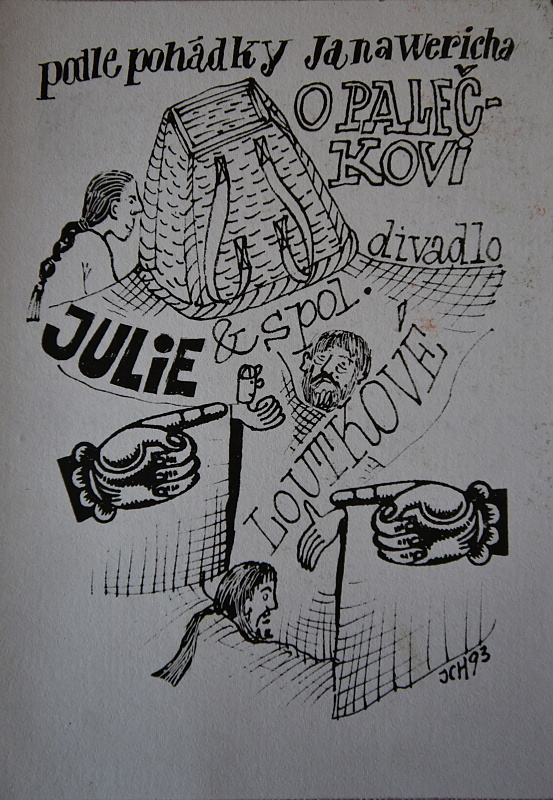 podle pohádky Jana Wericha
O PALEČ-
KOVI
divadlo
JULIE & spol.
LOUTKOVÉ
JCH93